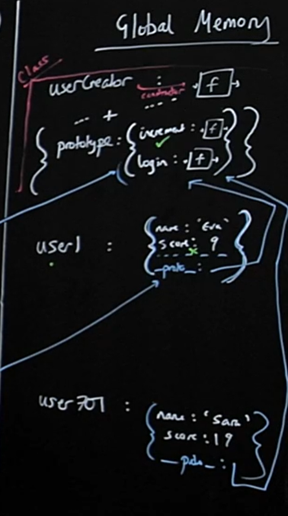 Global Memory
Class
userCreator : -[f]-
constructor
+
{ prototype: { increment : -[f]-
login : -[f]- } }
user1 : { name : 'Eva'
score : 9
__proto__ : }
user701 : { name : 'Sara'
score : 19
__proto__ : }